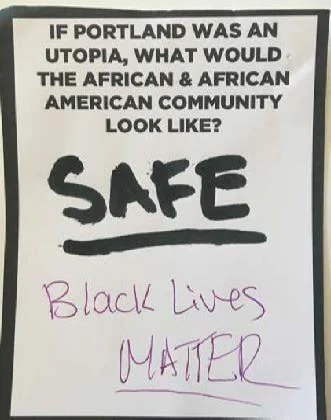 IF PORTLAND WAS AN
UTOPIA, WHAT WOULD
THE AFRICAN & AFRICAN
AMERICAN COMMUNITY
LOOK LIKE?
SAFE
Black Lives
MATTER